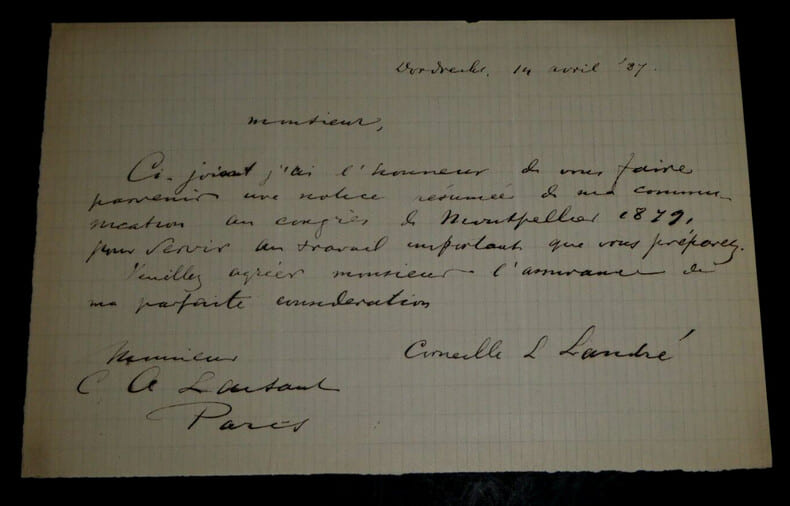 Dordrecht, 14 avril '87.
Monsieur,
Ci-joint j'ai l'honneur de vous faire
parvenir une notice résumée de ma commu-
nication au congrès de Montpellier 1879,
pour servir au travail important que vous préparez.
Veuillez agréer monsieur l'assurance de
ma parfaite consideration
Corneille L Landré
Monsieur
C A Laisant
Paris